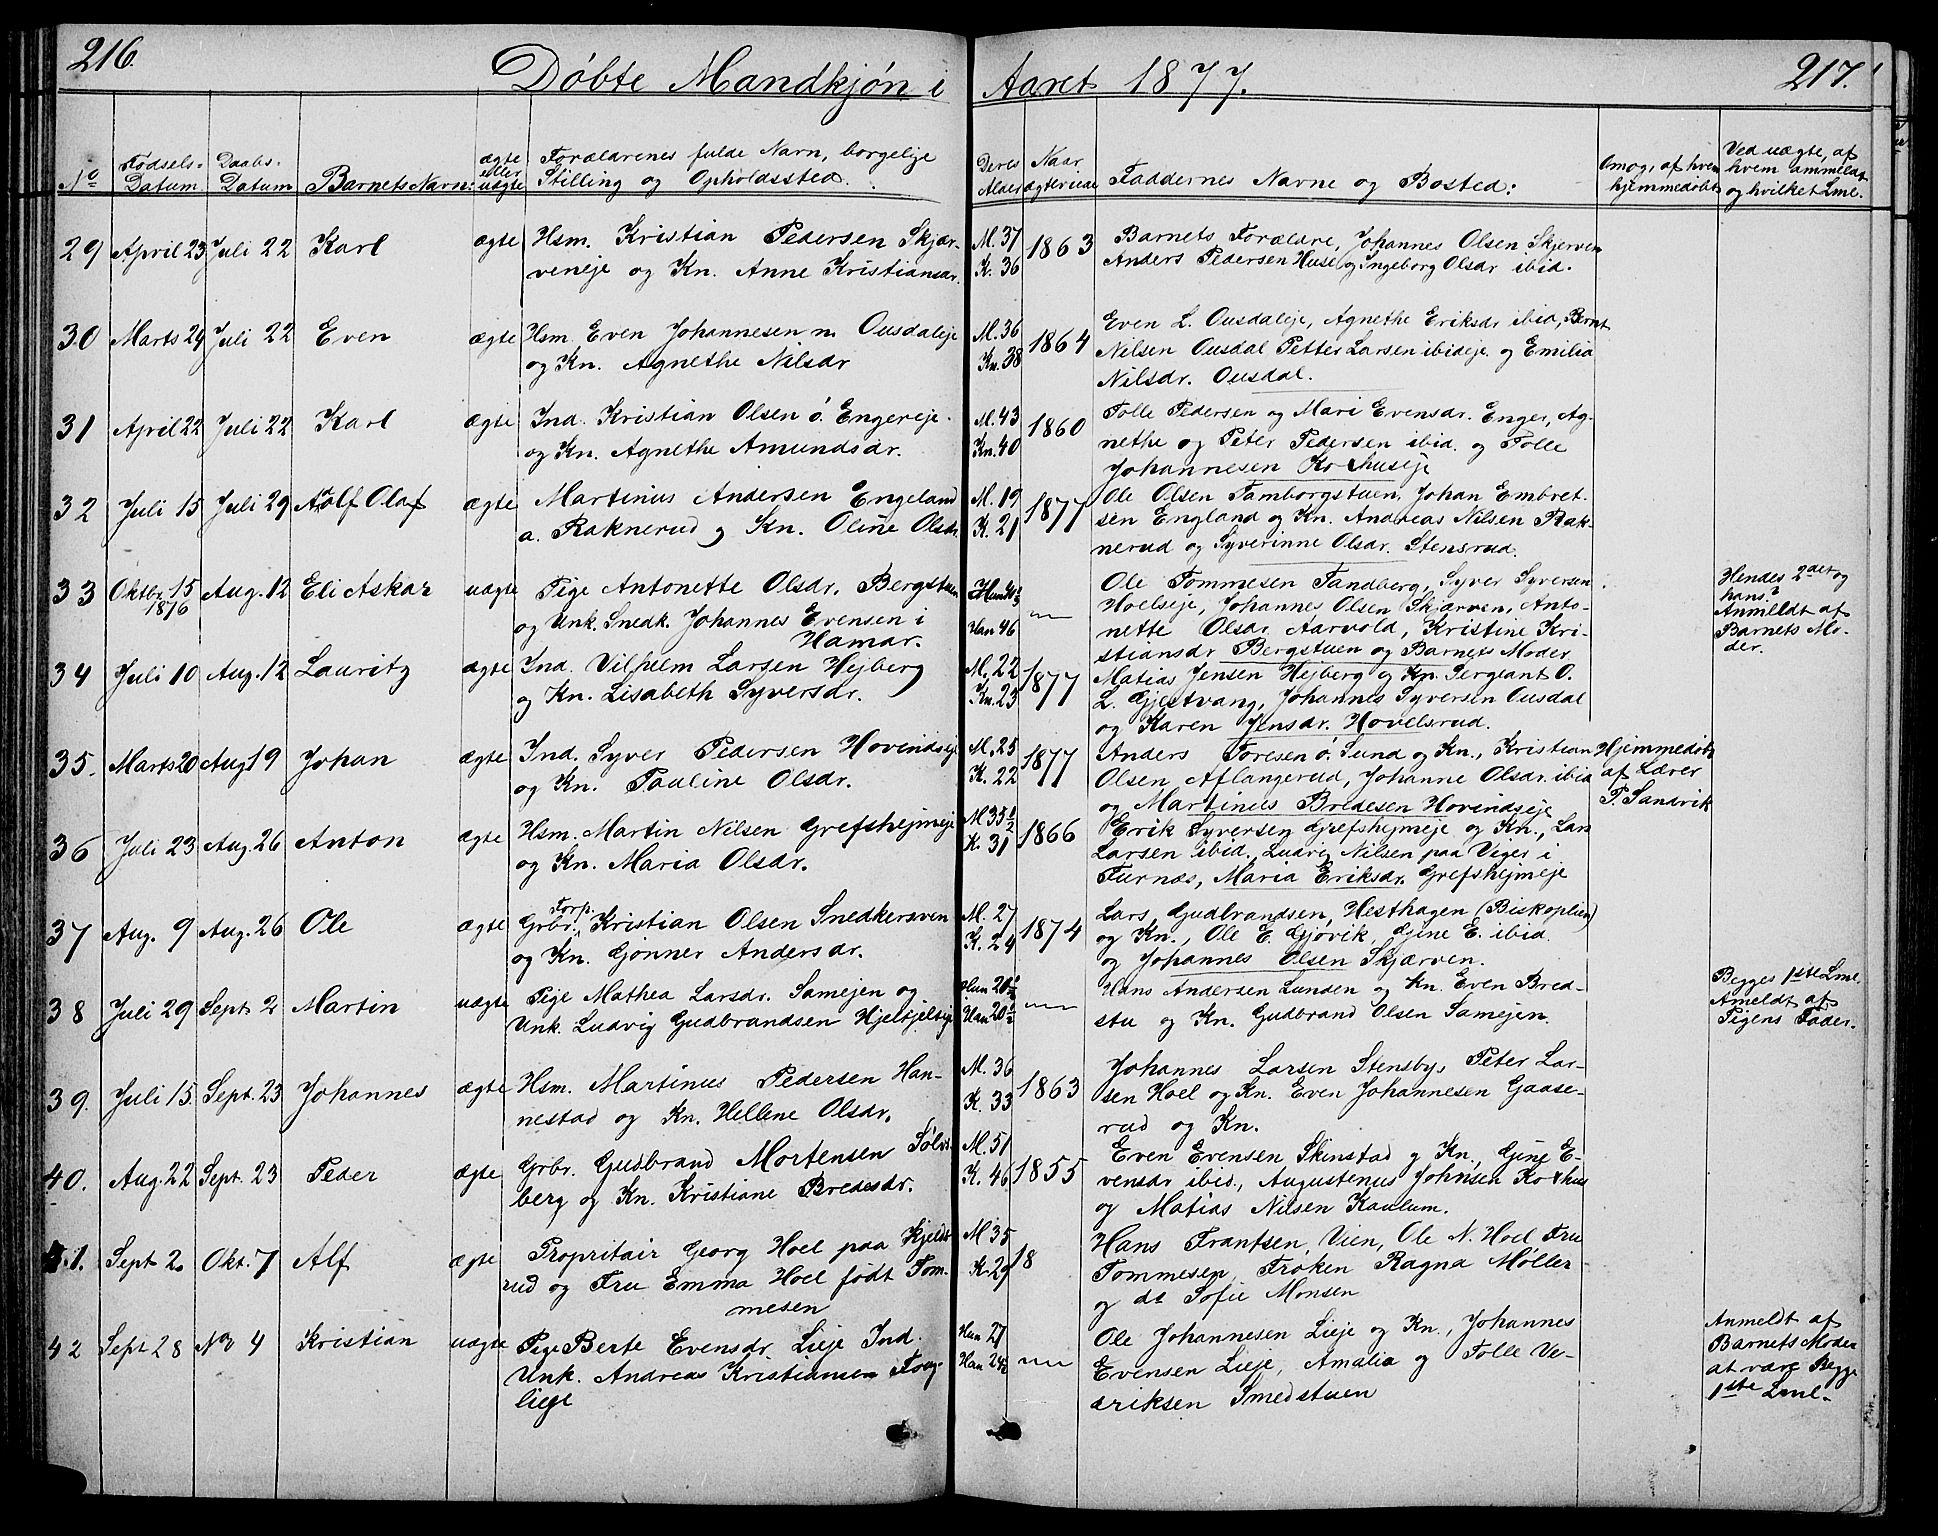 216.
Døbte Mandkjøn i Aaret 1877.
217.
No
Fødsels-Datum
Daabs-Datum
Barnets Navn:
ægte eller uægte
Forældrenes fulde Navn, borgelige
Stilling og Opholdssted.
Deres Alder
Naar ægteviede
Faddernes Navne og Bosted:
Om og af hvem hjemmedøbt
Ved uægte, af
hvem anmeldt
og hvilket Lml.
29 April 23 Juli 22 Karl ægte Hsm. Kristian Pedersen Skjær-
veneje og Kn. Anne Kristiansdr.
M. 37
K. 36
1863
Barnets Forældre, Johannes Olsen Skjerven
Anders Pedersen Huse og Ingeborg Olsdr ibid.
30 Marts 24 Juli 22 Even ægte Hsm. Even Johannesen n. Ousdaleje
og Kn. Agnethe Nilsdr
M. 36
Kn. 38
1864
Even L. Ousdaleje, Agnethe Eriksdr ibid, Bernt
Nilsen Ousdal Petter Larsen ibideje. og Emilia
Nilsdr. Ousdal.
31 April 22 Juli 22 Karl ægte Ind. Kristian Olsen ó. Engereje.
og Kn. Agnethe Amundsdr.
M. 43
Kn. 40
1860
Tolle Pedersen og Mari Evensdr. Enger, Ag-
nethe og Peter Pedersen ibid. og Tolle
Johannesen Korthuseje
32 Juli 15 Juli 29 Adolf Olaf ægte Martinus Andersen Engeland
a. Raknerud og Kn. Oline Olsdr.
M. 19
K. 21
1877
Ole Olsen Tamborgstuen, Johan Embret-
sen England og Kn. Andreas Nilsen Rak-
nerud og Syverinne Olsdr. Stensrud.
33 Oktbr. 15
1876
Aug. 12 Eli Askar uægte Pige Antonette Olsdr. Bergstuen
og Unk. Snedk. Johannes Evensen i
Hamar.
Han 46
Ole Tommesen Tandberg, Syver Syversen
Hoelseje, Johannes Olsen Skjærven, Anto-
nette Olsdr Aarvold, Kristine Kri-
stiansdr Bergstuen og Barnets Moder
Hendes 2det og
hans?
Anmeldt af
Barnets Mo-
der.
34 Juli 10 Aug. 12 Lauritz ægte Ind. Vilhelm Larsen Hejberg
og Kn. Lisabeth Syversdr.
M. 22
Kn. 23
1877
Matias Jensen Hejberg og Kn. Sergeant O.
L. Gjestvang, Johannes Syversen Ousdal
og Karen Jensdr. Hovelsrud.
35. Marts 20 Aug 19 Johan ægte Ind. Syver Pedersen Hovindseje
og Kn. Pauline Olsdr.
M. 25
K. 22
1877
Anders Toresen ó. Sund og Kn., Kristian
Olsen Aflangerud, Johanne Olsdr. ibid
og Martinus Bredesen Hovindseje
Hjemmedøbt
af Lærer
P. Sandvik
36 Juli 23 Aug. 26 Anton ægte Hsm. Martin Nilsen Grefshejmeje
og Kn. Maria Olsdr.
M 35 1/2
K. 31
1866
Erik Syversen Grefshejmeje og Kn., Lars
Larsen ibid., Ludvig Nilsen paa Viger i
Furnæs, Maria Eriksdr. Grefshejmeje
37 Aug. 9 Aug. 26 Ole ægte Grbr. Forp. Kristian Olsen Snedkersven
og Kn. Gjønner Andersdr.
M. 27
K. 24
1874
Lars Gudbrandsen, Hesthagen (Biskoplien)
og Kn., Ole E. Gjøvik, Gjine E. ibid.
og Johannes Olsen Skjærven.
38 Juli 29 Sept. 2 Martin uægte Pige Mathea Larsdr. Samejen og
Unk. Ludvig Gudbrandsen
Hun 20 1/2
Han 20 1/2
Hans Andersen Lunden og Kn. Even Bred-
stu og Kn. Gudbrand Olsen Samejen.
Begges 1ste Lml
Ameldt af
Pigens Fader.
39. Juli 15. Sept. 23 Johannes ægte Hsm. Martinus Pedersen Han-
nestad og Kn. Hellene Olsdr.
M. 36
K. 33
1863
Johannes Larsen Stensby, Peter Lar-
sen Hoel og Kn. Even Johannesen Gaase-
rud og Kn.
40. Aug. 22 Sept. 23 Peder ægte Grbr. Gudbrand Mortensen Sølvs-
berg og Kn. Kristiane Bredesdr.
M. 51
K. 46
1855
Even Evensen Skinstad og Kn., Gjine E-
vensdr ibid., Augustenus Johnsen Korthus
og Matias Nilsen Kaulum.
41. Sept 2. Okt. 7 Alf ægte Propritair Georg Hoel paa Kjelds-
rud og Fru Emma Hoel født Tom-
mesen
M 35
K 29
18
Hans Frantsen, Vien, Ole N. Hoel Fru
Tommesen, Frøken Ragna Møller
og do Sofie Monsen
42 Sept 28 Nov 4 Kristian uægte Pige Berte Evensdr. Lieje Ind.
Unk. Andreas Kristiansen
lieje
Hun 27
Han 24
Ole Johannesen Lieje og Kn., Johannes
Evensen Lieje, Amalia og Tolle Ve-
driksen Smedstuen
Anmeldt af
Barnets Moder
at være Begge
1ste Lml.